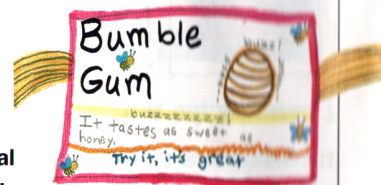 Bumble
buzz!
Gum
buzzzzzzzzz!
It tastes as sweet as
honey.
Try it, it's great
al